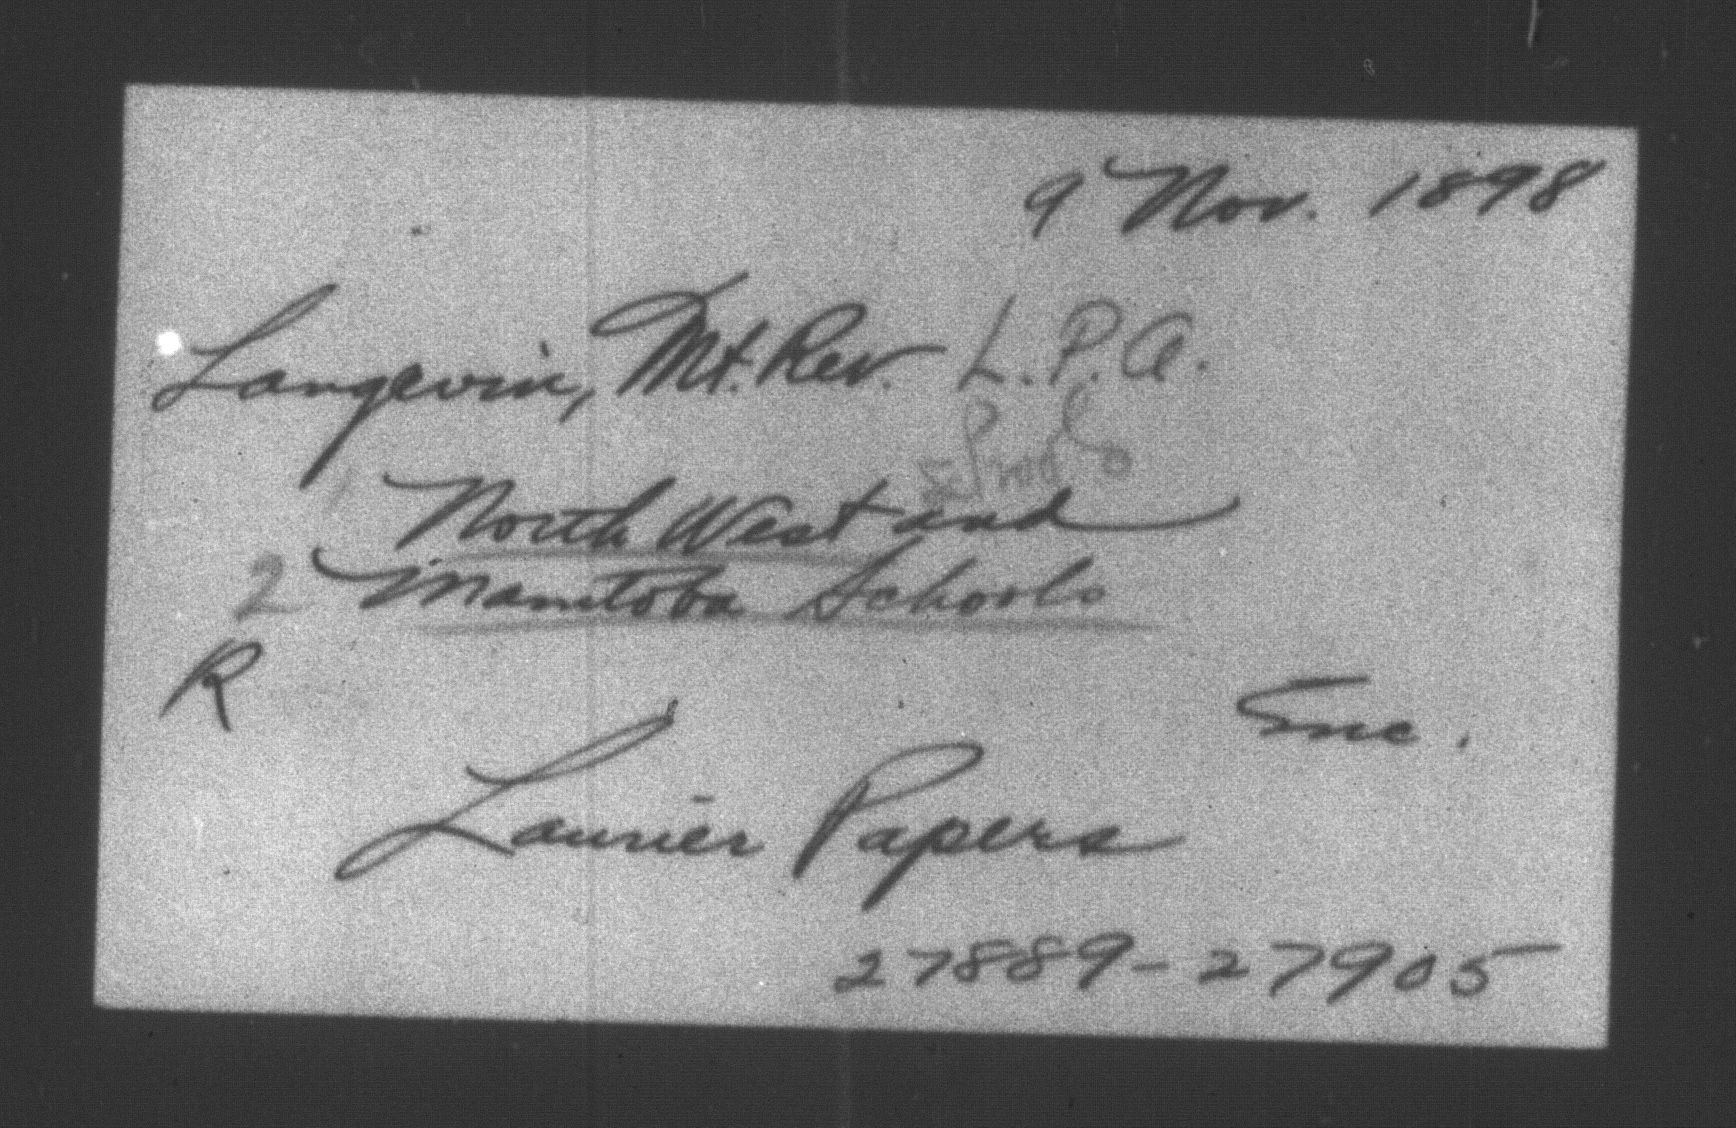 9 Nov. 1898
Langevin, Mt. Rev. L.P.A.
North West and
2 Manitoba Schools
R
Enc.
Laurier Papers
27889-27905